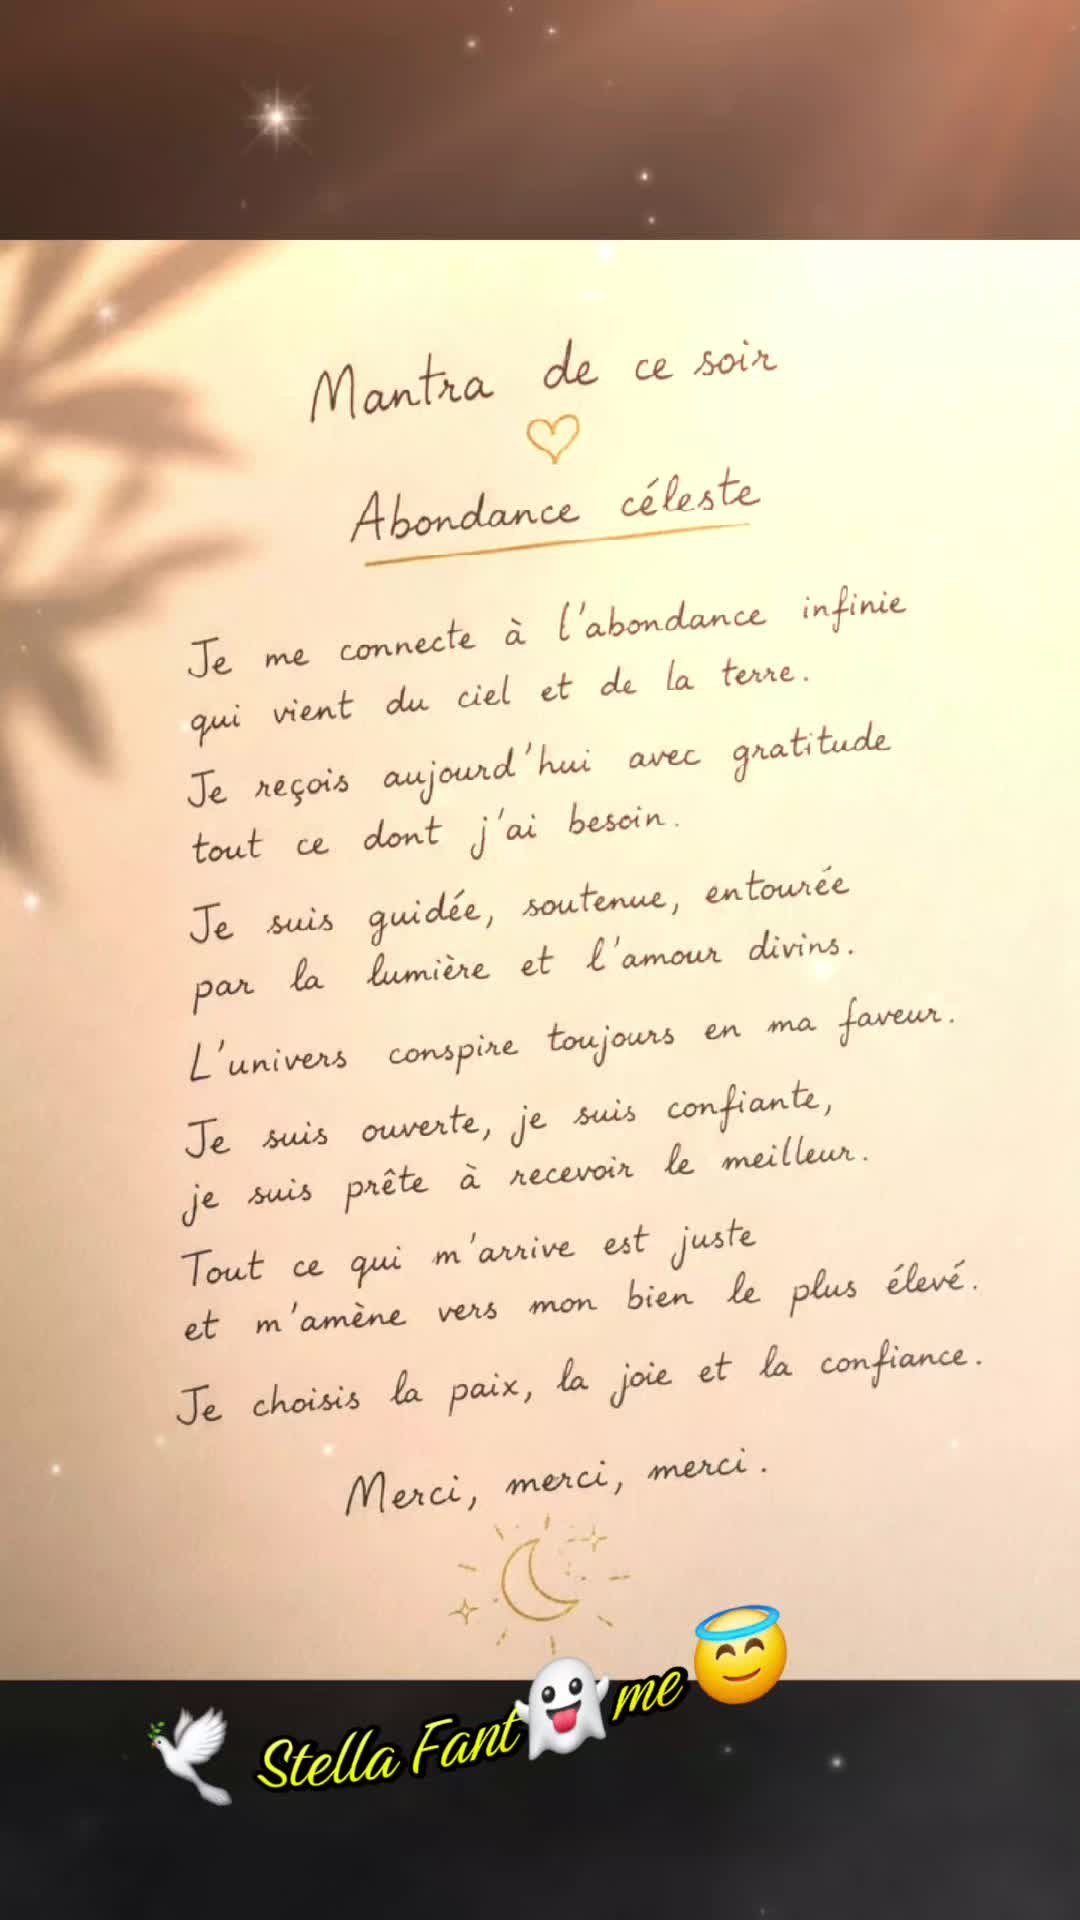 Mantra de ce soir
Abondance céleste
Je me connecte à l'abondance infinie
qui vient du ciel et de la terre.
Je reçois aujourd'hui avec gratitude
tout ce dont j'ai besoin.
Je suis guidée, soutenue, entourée
par la lumière et l'amour divins.
L'univers conspire toujours en ma faveur.
Je suis ouverte, je suis confiante,
je suis prête à recevoir le meilleur.
Tout ce qui m'arrive est juste
et m'amène vers mon bien le plus élevé.
Je choisis la paix, la joie et la confiance.
Merci, merci, merci.
🕊️ Stella Fant👻me 😇